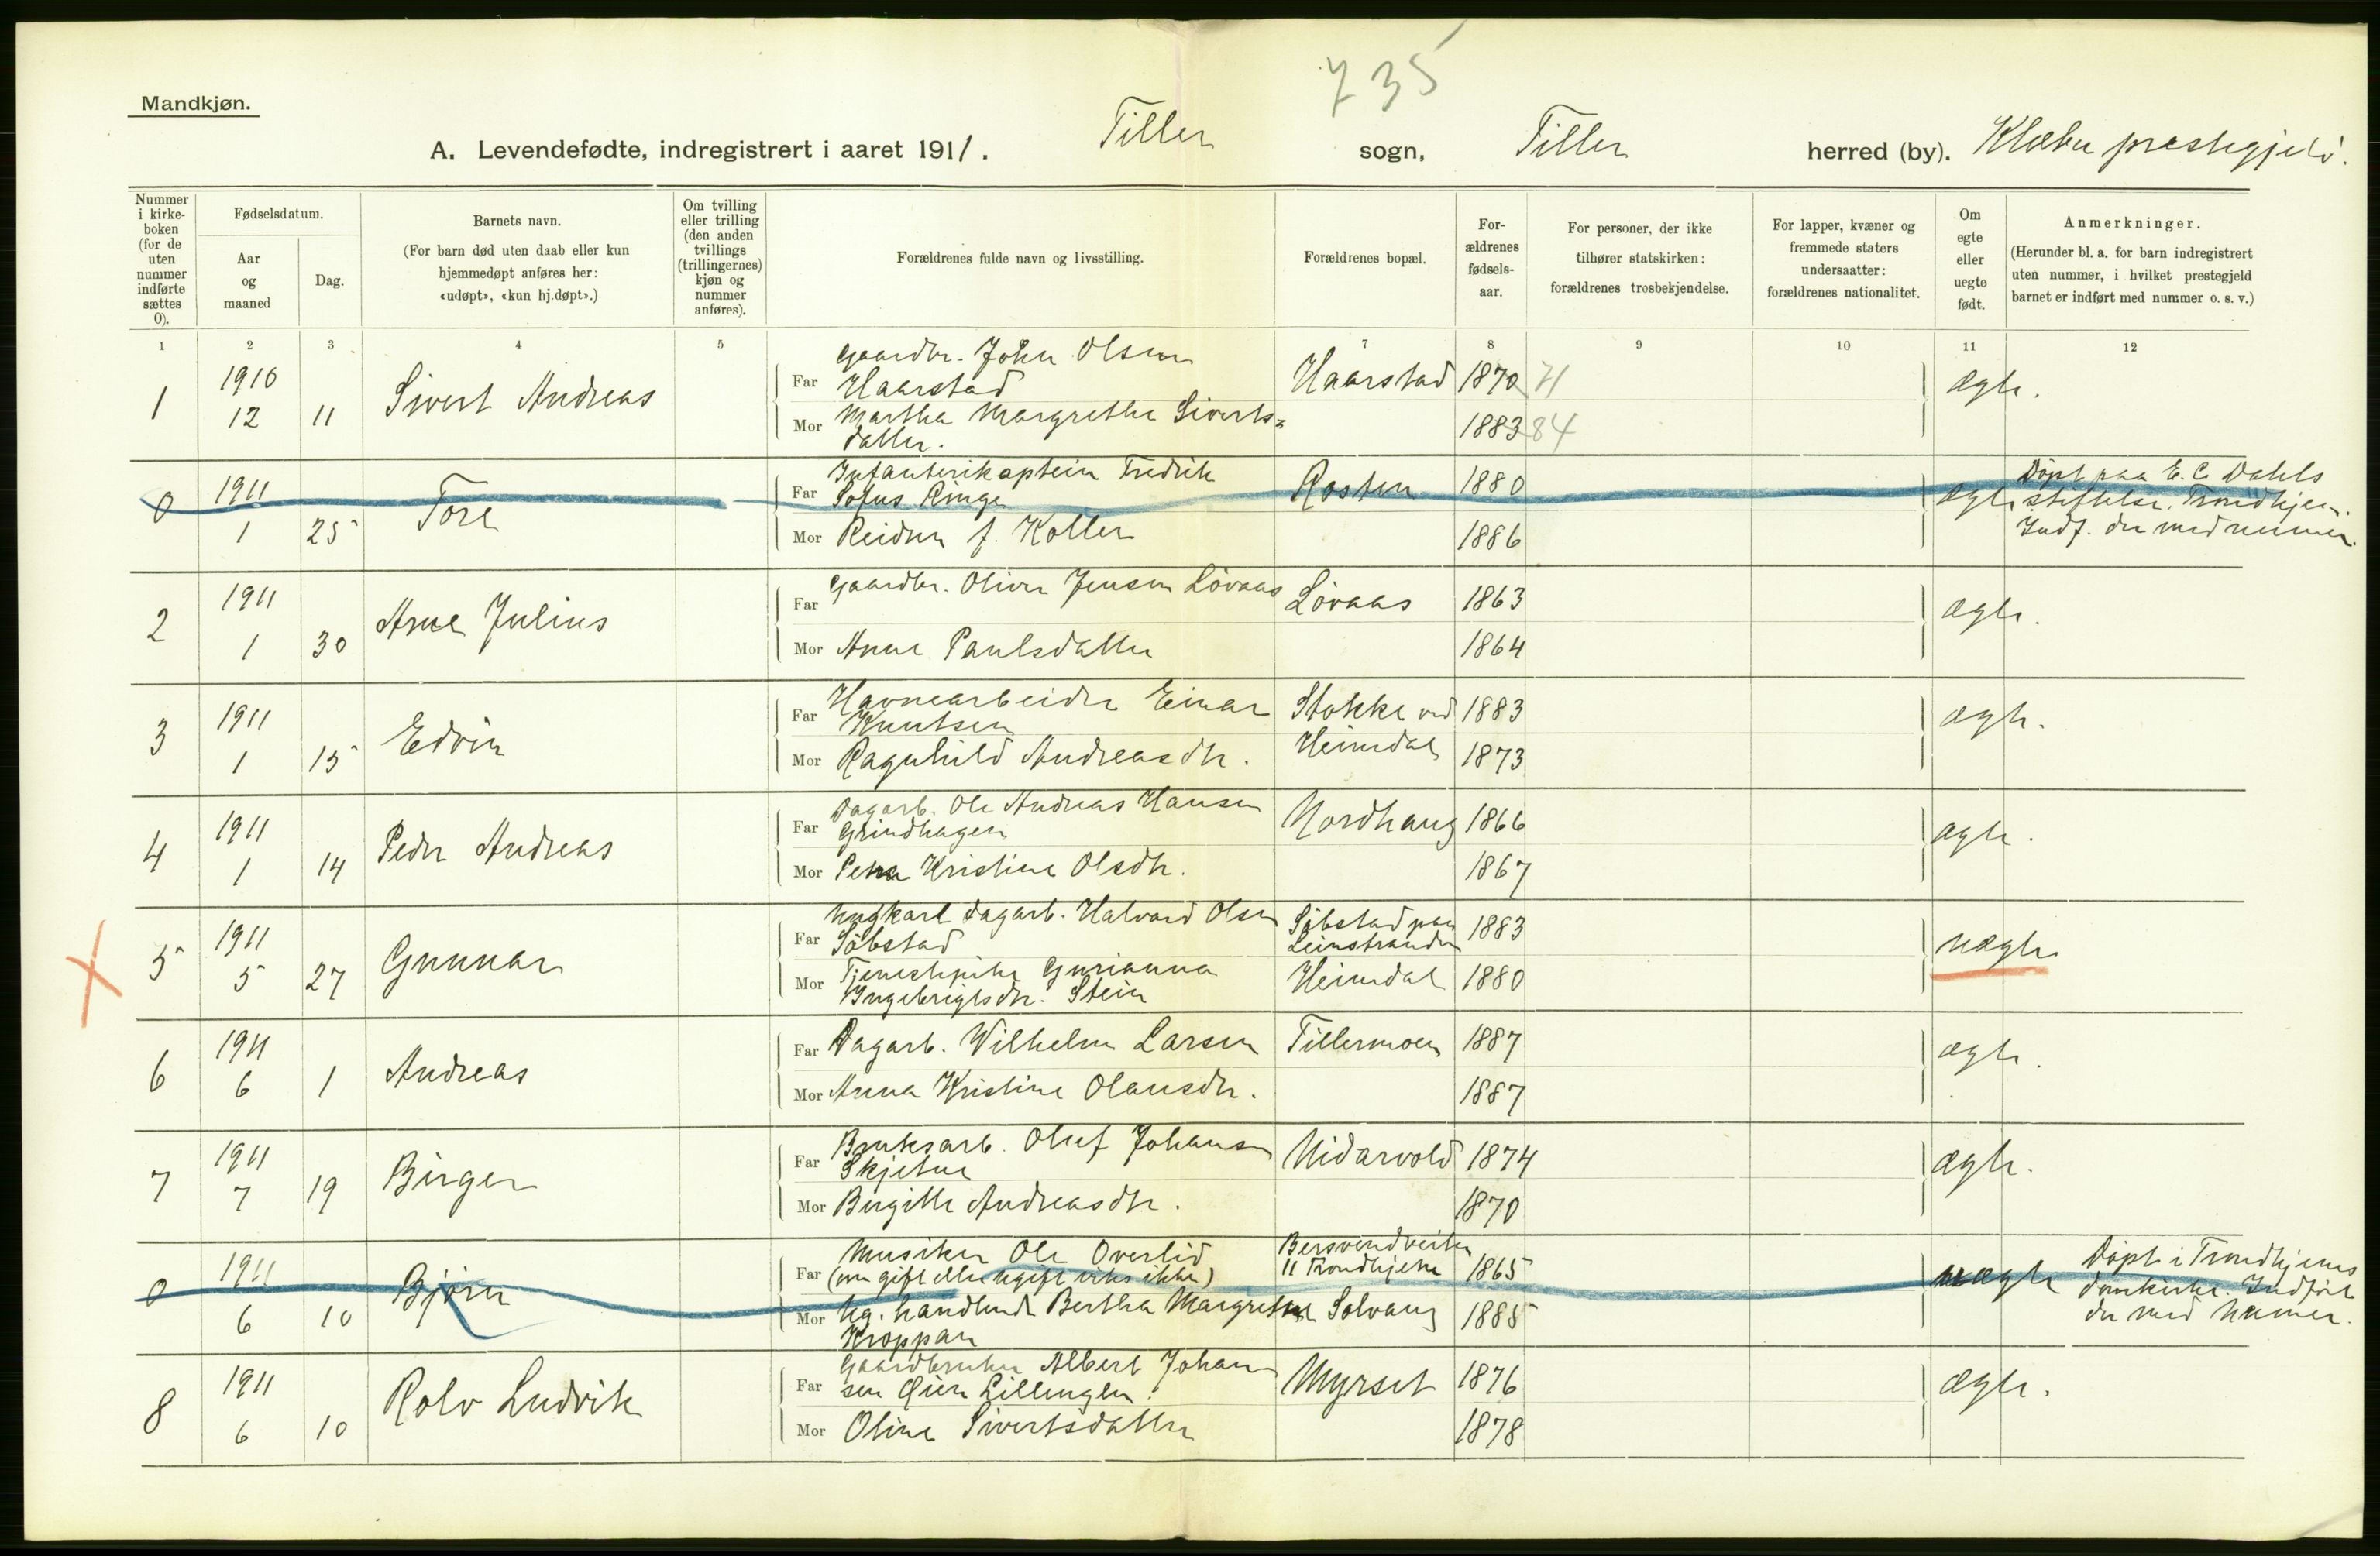 735
Mandkjøn.
A. Levendefødte, indregistrert i aaret 1911. Tiller sogn, Tiller herred (by). Klæbu prestegjeld.
Nummer i kirke-boken (for de uten nummer indførte sættes 0).
Fødselsdatum.
Aar og maaned
Dag.
Barnets navn.
(For barn død uten daab eller kun hjemmedøpt anføres her: «udøpt», «kun hj.døpt».)
Om tvilling eller trilling (den anden tvillings (trillingernes) kjøn og nummer anføres).
Forældrenes fulde navn og livsstilling.
Forældrenes bopæl.
For-ældrenes fødsels-aar.
For personer, der ikke tilhører statskirken: forældrenes trosbekjendelse.
For lapper, kvæner og fremmede staters undersaatter: forældrenes nationalitet.
Om egte eller uegte født.
Anmerkninger.
(Herunder bl. a. for barn indregistrert uten nummer, i hvilket prestegjeld barnet er indført med nummer o. s. v.)
1 2 3 4 5 7 8 9 10 11 12
1 1910 12 11 Sivert Andreas
Far Gaardbr. John Olsen
Haarstad Haarstad 1870 71 ægte.
Mor Martha Margrethe Siverts=
datter. 1883 84
0 1911 1 25 Tore
Far Infanterikaptein Fredrik
Sofus Ringe Rosten 1880 ægte
Mor Reidun f. Koller 1886
Døpt paa E. C. Dahls
stiftelse, Trondhjem.
Indf. der med nummer.
2 1911 1 30 Arne Julius
Far Gaardbr. Oliver Jensen Løvaas Løvaas 1863 ægte.
Mor Anne Paulsdatter 1864
3 1911 1 15 Edvin
Far Havnearbeider Einar
Knutsen Stokke ved 1883 ægte.
Mor Ragnhild Andreasdtr. Heimdal 1873
4 1911 1 14 Peder Andreas
Far Dagarb. Ole Andreas Hansen
Grindhagen Nordhaug 1866 ægte.
Mor Petra Kristine Olsdtr. 1867
5 1911 5 27 Gunnar
Far Ungkarl dagarb. Halvard Olsen
Søbstad Søbstad paa
Leinstranden 1883 uægte
Mor Tjenestepike Gurianna
Ingebrigtsdtr. Stein Heimdal 1880
6 1911 6 1 Andreas
Far Dagarb. Wilhelm Larsen Tillermoen 1887 ægte.
Mor Anna Kristine Olausdtr. 1887
7 1911 7 19 Birger
Far Bruksarb. Oluf Johansen
Skjetne Nidarvold 1874 ægte.
Mor Birgitte Andreasdtr. 1870
0 1911 6 10 Bjørn
Far Musiker Ole Overlid
(om gift eller ugift vites ikke) Bersvendveiten
11 Trondhjem 1865 uægte
Mor Ug. handlende Bertha Margrethe
Kroppan Solvang 1885
Døpt i Trondhjems
domkirke. Indført
der med nummer.
8 1911 6 10 Rolv Ludvik
Far Gaardbruker Albert Johan
sen Øien Lillengen. Myrset 1876 ægte.
Mor Oline Sivertsdatter 1878